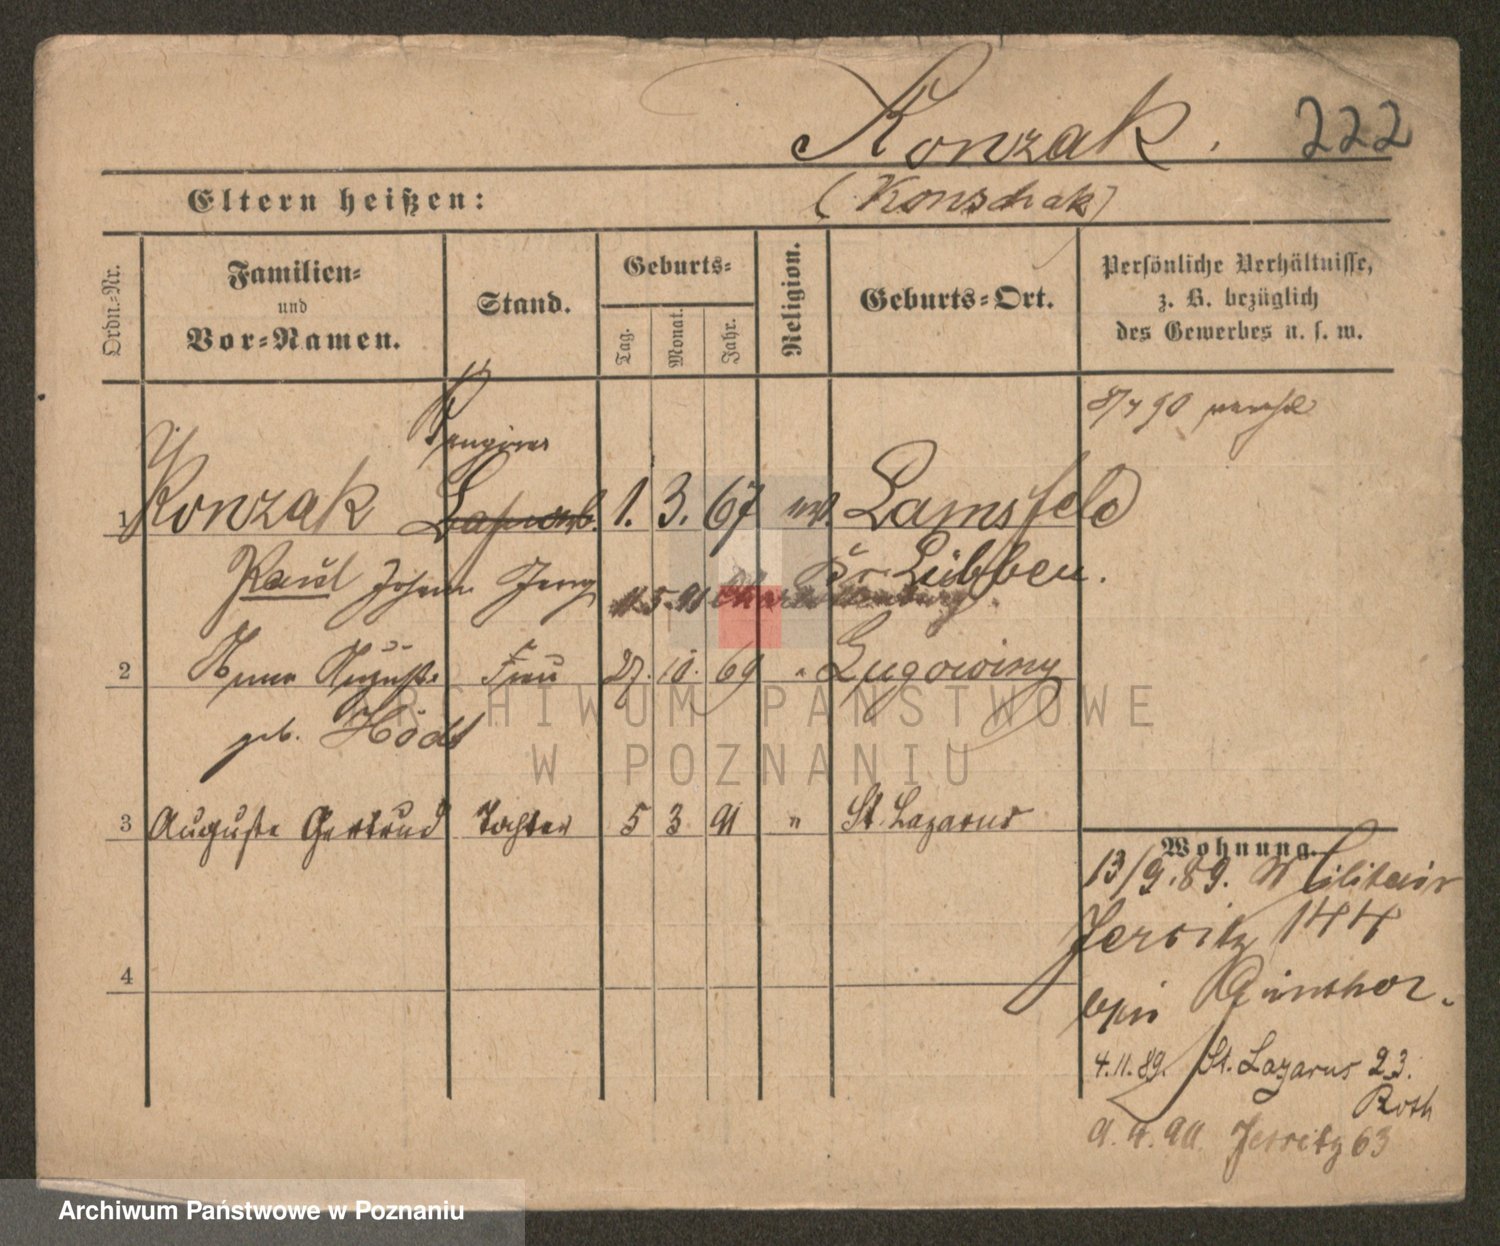 Konzak. 222
Eltern heißen: (Konschak)
Ordn.-Nr.
Familien-
und
Vor-Namen.
Stand.
Geburts-
Tag.
Monat.
Jahr.
Religion.
Geburts-Ort.
Persönliche Verhältnisse,
z. B. bezüglich
des Gewerbes u. s. w.
90
1 Konzak 1. 3. 67 Lamsfeld
Paul Johann Kr. Lübben.
5. 91
2 Anna Auguste Frau 27. 10. 69 " Lugowiny
geb. Hödt
3 Auguste Gertrud Tochter 5 3 91 " St. Lazarus
4
Wohnung.
13/9.89. Militair
Jersitz 144
bei Günther.
4.11.89. St. Lazarus 23.
Roth
Jersitz 63
ARCHIWUM PAŃSTWOWE
W POZNANIU
Archiwum Państwowe w Poznaniu